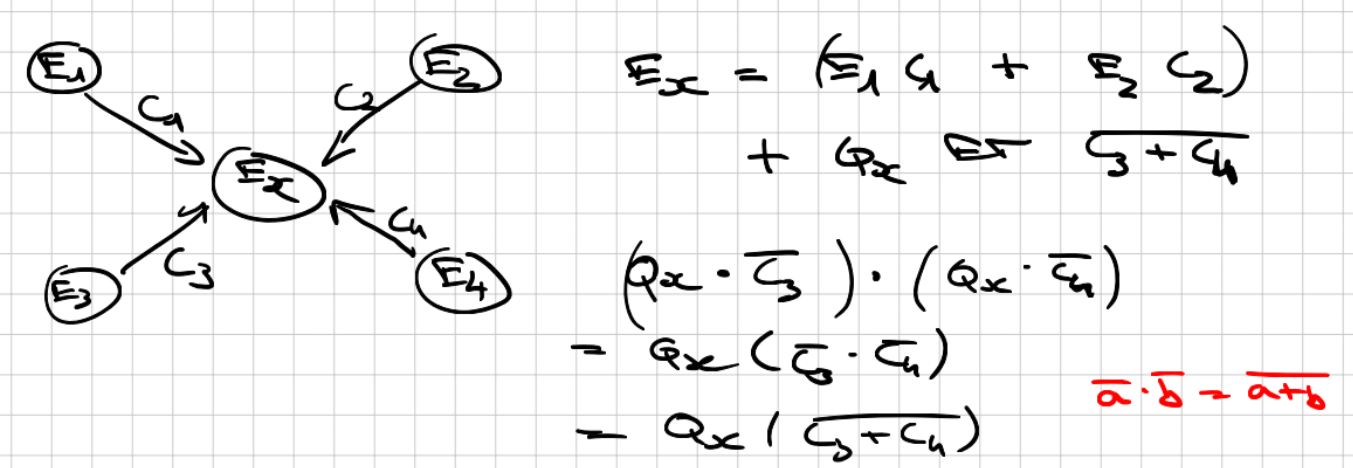 E1
E2
C1
C2
Ex
C3
C4
E3
E4
Ex = (E1 C1 + E2 C2)
+ Qx ET \overline{C3 + C4}
(Qx · \overline{C3}) · (Qx · \overline{C4})
= Qx (\overline{C3} · \overline{C4})
= Qx (\overline{C3 + C4})
\overline{a} · \overline{b} = \overline{a+b}